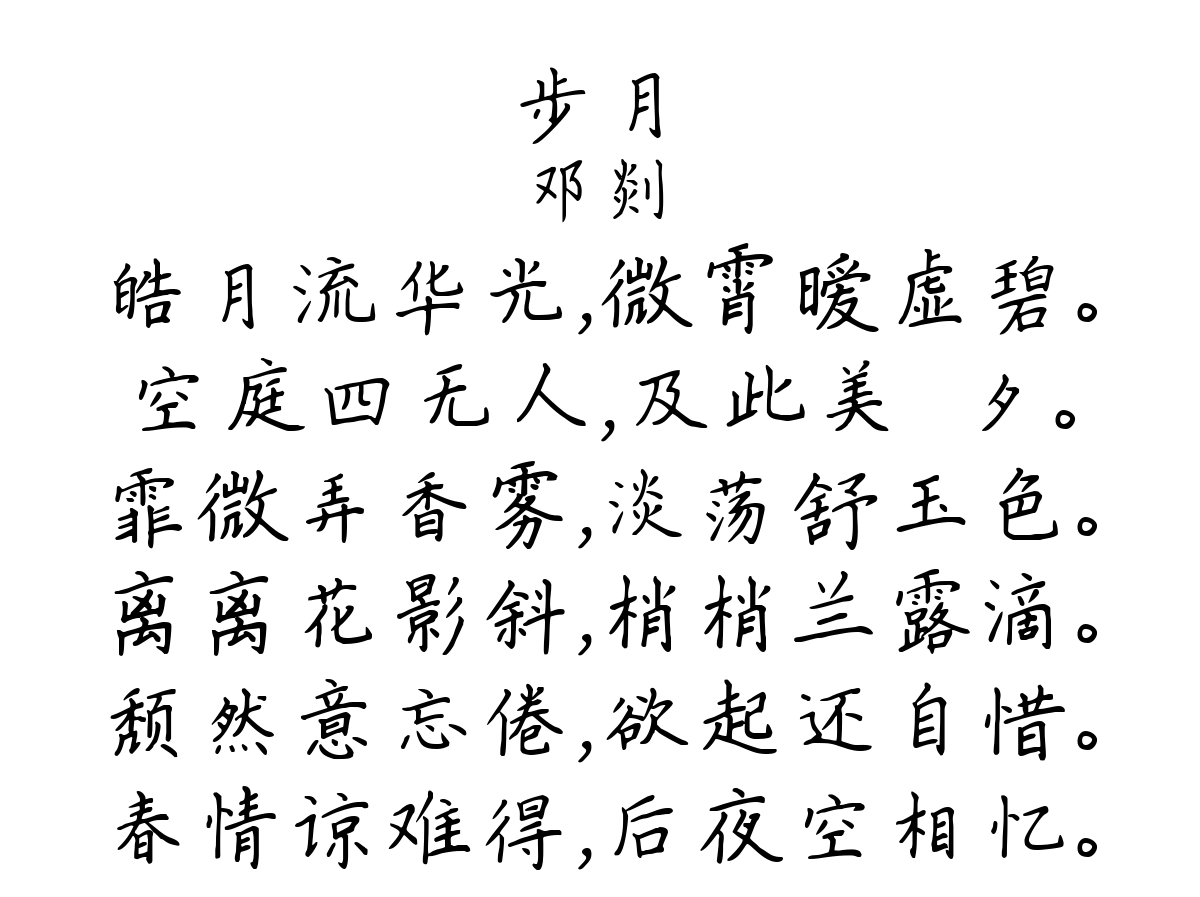 步月
邓剡
皓月流华光,微霄暧虚碧。
空庭四无人,及此美 夕。
霏微弄香雾,淡荡舒玉色。
离离花影斜,梢梢兰露滴。
颓然意忘倦,欲起还自惜。
春情谅难得,后夜空相忆。